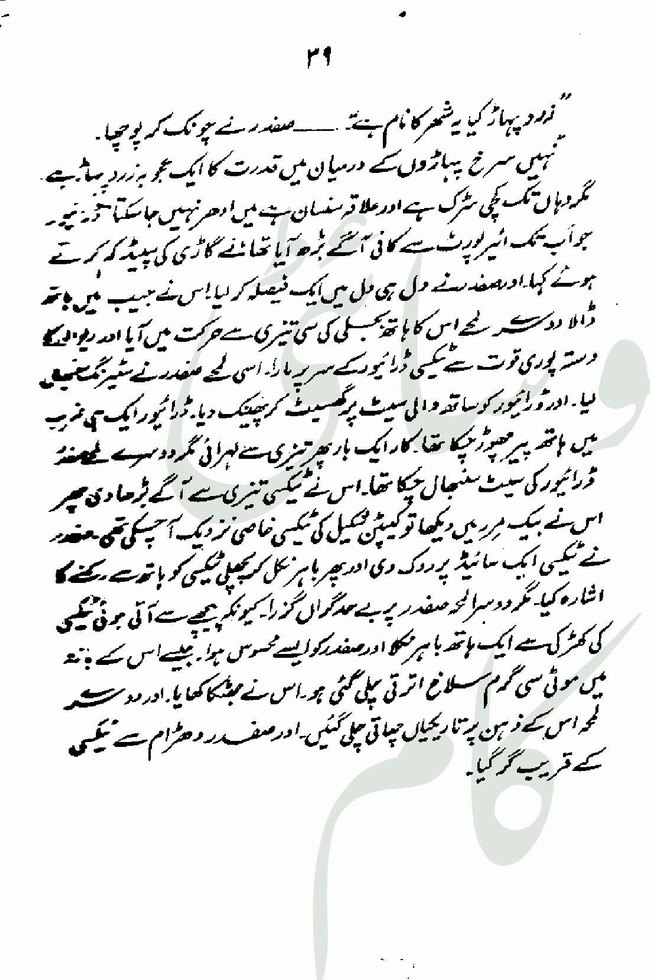 ۳۹
"زرد پہاڑ کیا یہ شہر کا نام ہے"۔ ــــــ صفدر نے چونک کر پوچھا۔
"نہیں سرخ پہاڑوں کے درمیان میں قدرت کا ایک عجوبہ زرد پہاڑ ہے۔
مگر وہاں تک کچی سڑک ہے اور علاقہ سنسان ہے میں ادھر نہیں جا سکتا" ڈرائیور
جو اب تک ائیرپورٹ سے کافی آگے بڑھ آیا تھا نے گاڑی کی سپیڈ کم کرتے
ہوئے کہا۔ اور صفدر نے دل ہی دل میں ایک فیصلہ کر لیا۔ اس نے جیب میں ہاتھ
ڈالا دوسرے لمحے اس کا ہاتھ بجلی کی سی تیزی سے حرکت میں آیا اور ریوالور کا
دستہ پوری قوت سے ٹیکسی ڈرائیور کے سر پر مارا۔ اسی لمحے صفدر نے سٹیرنگ سنبھال
لیا۔ اور ڈرائیور کو ساتھ والی سیٹ پر گھسیٹ کر پھینک دیا۔ ڈرائیور ایک ہی ضرب
میں ہاتھ پیر چھوڑ چکا تھا۔ کار ایک بار پھر تیزی سے لہرائی مگر دوسرے لمحے صفدر
ڈرائیور کی سیٹ سنبھال چکا تھا۔ اس نے ٹیکسی تیزی سے آگے بڑھا دی پھر
اس نے بیک مرر میں دیکھا تو کیپٹن شکیل کی ٹیکسی خاصی نزدیک آ چکی تھی۔ صفدر
نے ٹیکسی ایک سائیڈ پر روک دی اور پھر باہر نکل کر پچھلی ٹیکسی کو ہاتھ سے رکنے کا
اشارہ کیا۔ مگر دوسرا لمحہ صفدر پر بے حد گراں گزرا۔ کیونکہ پیچھے سے آتی ہوئی ٹیکسی
کی کھڑکی سے ایک ہاتھ باہر نکلا اور صفدر کو ایسے محسوس ہوا۔ جیسے اس کے ہاتھ
میں موٹی سی گرم سلاخ اترتی چلی گئی ہو۔ اس نے جھٹکا کھایا۔ اور دوسرے
لمحہ اس کے ذہن پر تاریکیاں چھاتی چلی گئیں۔ اور صفدر دھڑام سے ٹیکسی
کے قریب گر گیا۔